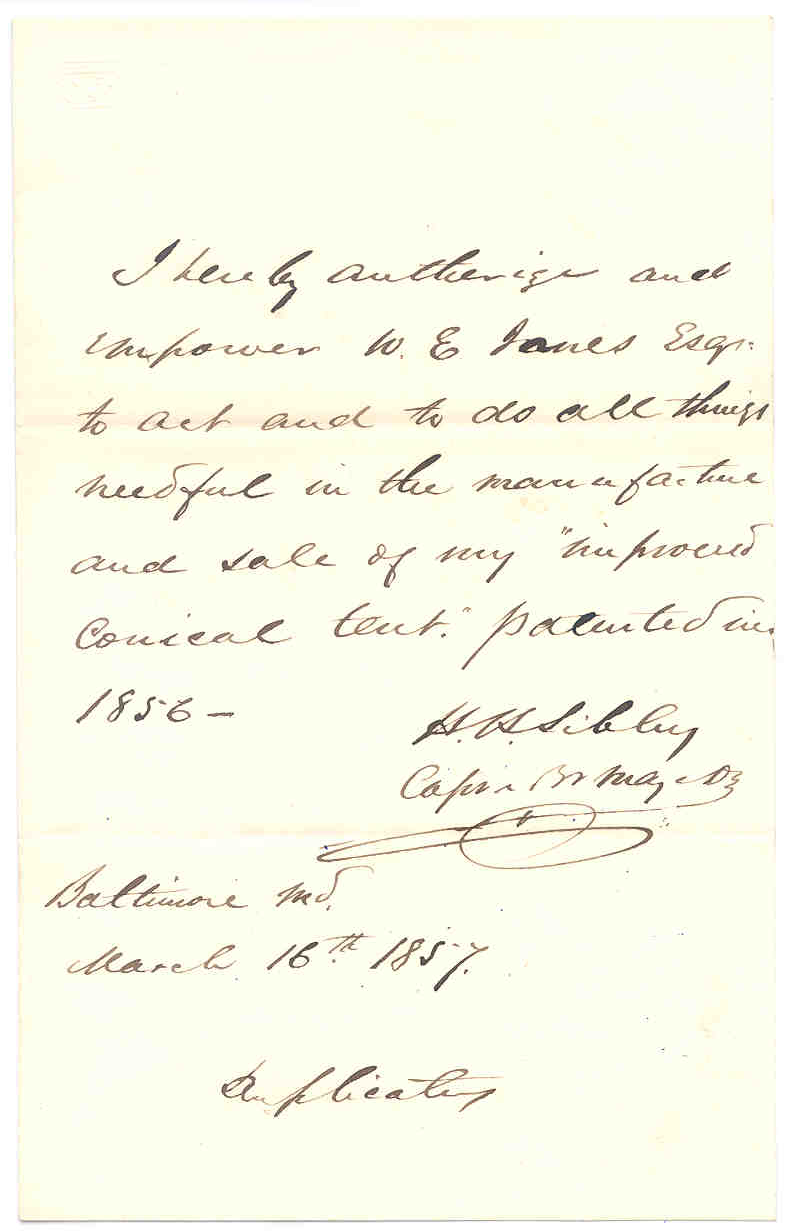 I hereby authorize and
empower W. E Jones Esqr:
to act and to do all things
needful in the manufacture
and sale of my "improved
Conical tent." patented in
1856 –
H. H. Sibley
Capt & Bt Maj
Baltimore Md.
March 16th 1857.
Duplicates